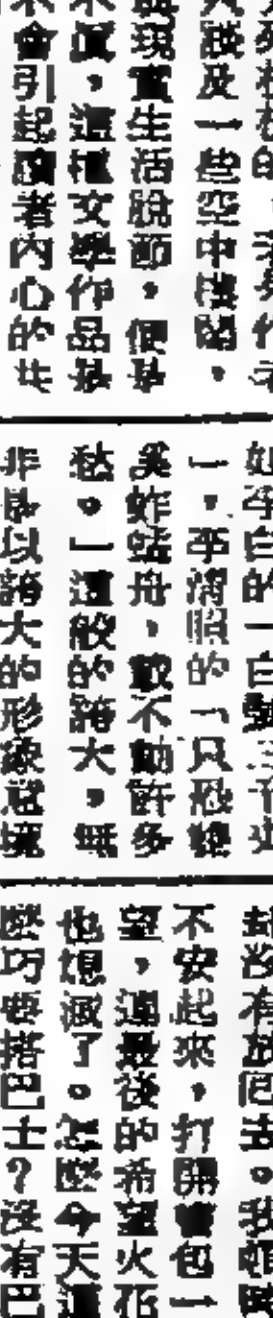 談及一些空中樓閣，
現實生活脫節，便是
不眞，這種文學作品是
不會引起讀者內心的共
如李白的「白髮三千丈
」，李淸照的「只恐雙
溪蚱蜢舟，載不動許多
愁。」這般的誇大，無
非是以誇大的形象意境
有放回去。我頓時
不安起來，打開書包一
望，連最後的希望火花
也熄滅了。怎麼今天這
麼巧要搭巴士？沒有巴